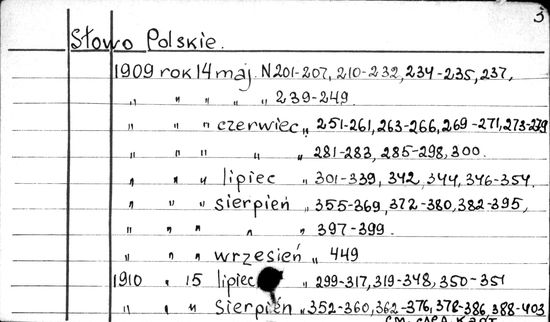 3
Słowo Polskie.
1909 rok 14 maj. N 201-207, 210-232, 234-235, 237,
„ „ „ „ „ 239-249.
„ „ „ czerwiec „ 251-261, 263-266, 269-271, 273-279
„ „ „ „ „ 281-283, 285-298, 300.
„ „ „ lipiec „ 301-339, 342, 344, 346-354.
„ „ „ sierpień „ 355-369, 372-380, 382-395,
„ „ „ „ „ 397-399.
„ „ „ wrzesień „ 449
1910 „ 15 lipiec „ 299-317, 319-348, 350-351
„ „ „ Sierpień „ 352-360, 362-376, 378-386, 388-403